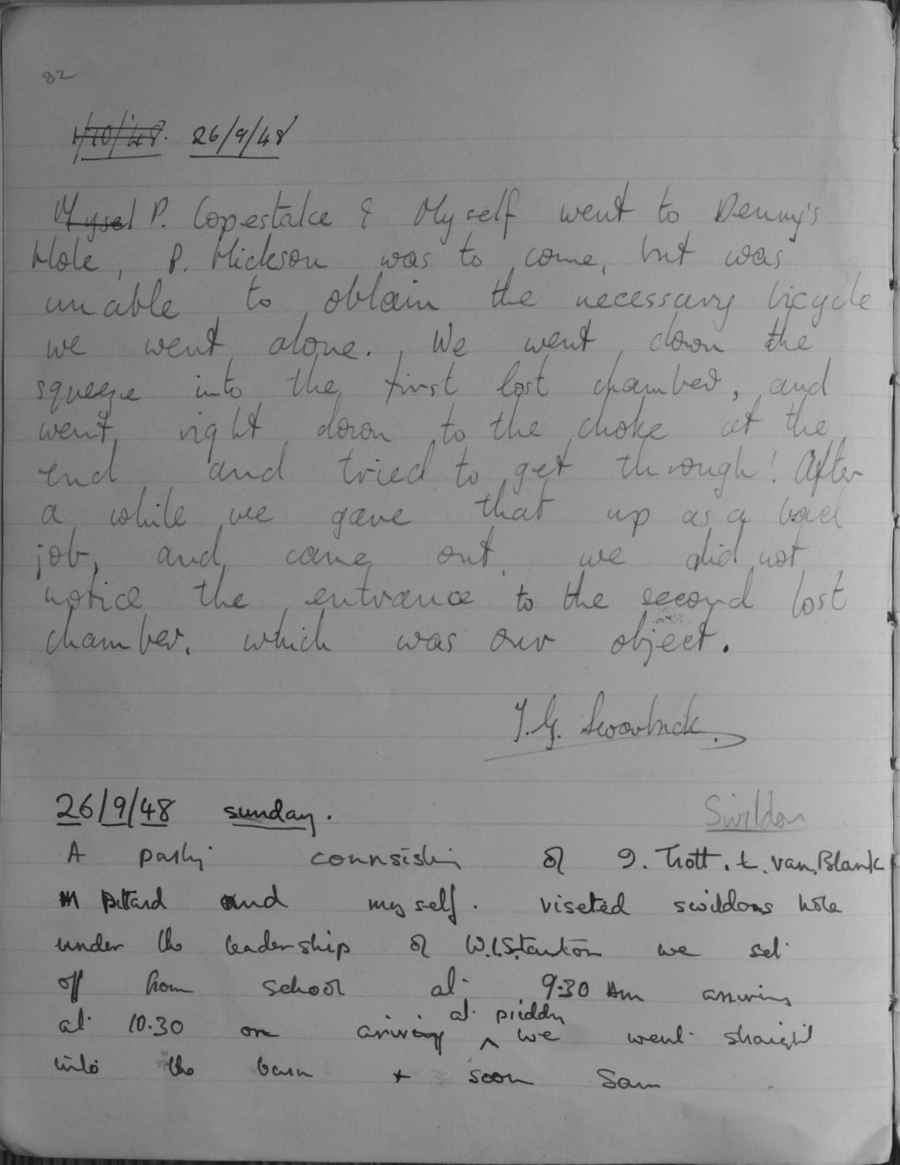 82
1/10/48. 26/9/48
Mysel P. Copestake & Myself went to Denny's
Hole, P. Hickson was to come, but was
unable to obtain the necessary bicycle
we went alone. We went down the
squeeze into the first lost chamber, and
went right down to the choke at the
end and tried to get through! After
a while we gave that up as a bad
job, and came out, we did not
notice the entrance to the second lost
chamber, which was our object.
26/9/48 sunday. Swildon
A party connsistin of J. Trott. L. van Blank
M Pittard and myself. viseted swildons hole
under the leadership of W.I.Stanton we set
off from school at 9.30 Am arriving
at 10.30 on ariving at priddy we went straight
into the barn + soon Sam